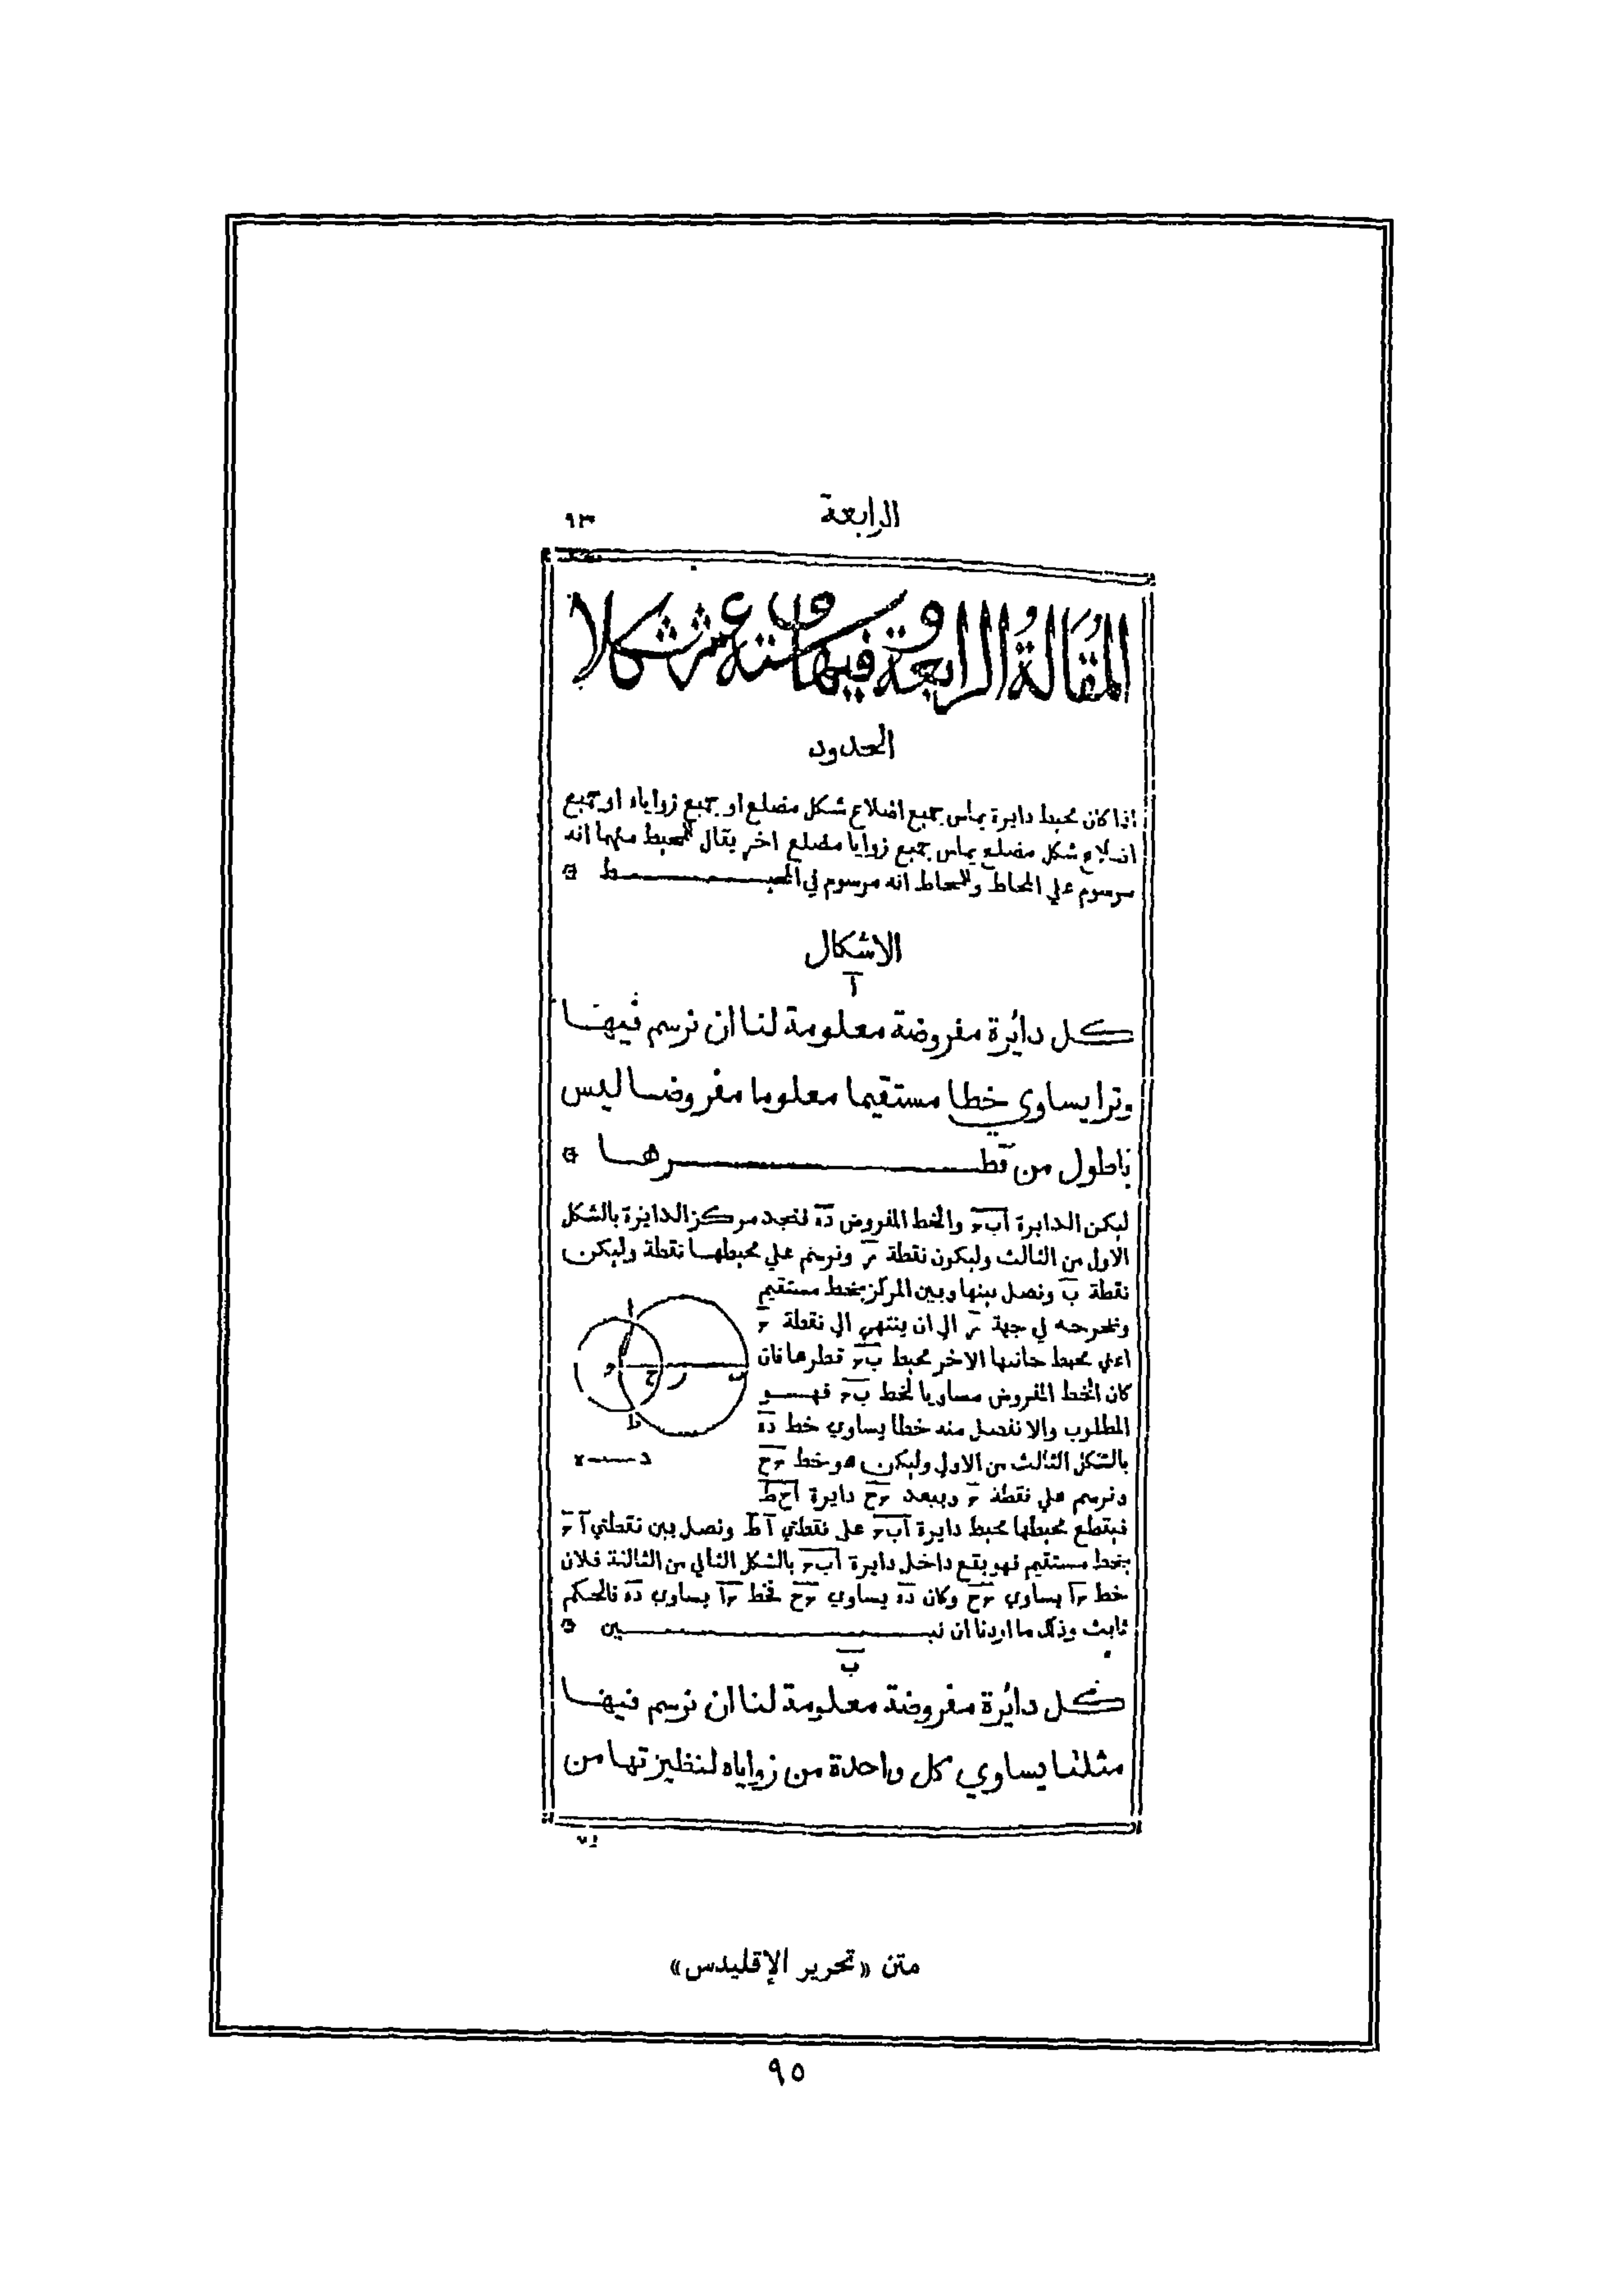 الرابعة
٩٣
المقالة الرابعة وفيها ستة عشر شكلا
الحدود
اذا كان محيط دايرة يماس جميع اضلاع شكل مضلع او جميع زواياه او جميع
اضلاع شكل مضلع يماس جميع زوايا مضلع اخر يقال للمحيط منهما انه
مرسوم علي المحاط وللمحاط انه مرسوم في المحيـط
الاشكال
آ
كل دائرة مفروضة معلومة لنا ان نرسم فيها
وترا يساوي خطا مستقيما معلوما مفروضا ليس
باطول من قطـرها
ليكن الدايرة ابحـ والخط المفروض ده فنجد مركز الدايرة بالشكل
الاول من الثالث وليكون نقطة ر ونرسم علي محيطها نقطة وليكن
نقطة ب ونصل بينها وبين المركز بخط مستقيم
ونخرجه في جهة ر الي ان ينتهي الي نقطة حـ
اعني محيط جانبها الاخر محيط بحـ قطرها فان
كان الخط المفروض مساويا لخط بحـ فهـو
المطلوب والا نفصل منه خطا يساوي خط ده
بالشكل الثالث من الاول وليكن هو خط حـح
ونرسم علي نقطة حـ وببعد حـح دايرة احط
فيقطع محيطها محيط دايرة ابحـ علي نقطتي آ ط ونصل بين نقطتي آ حـ
بخط مستقيم فهو يقع داخل دايرة ابحـ بالشكل الثاني من الثالثة فلان
خط حـا يساوي حـح وكان ده يساوي حـح فخط حـا يساوي ده فالحكم
ثابت وذلك ما اردنا ان نبـين
ا
ه
ح
ر
ب
ط
د
ه
ب
كل دائرة مفروضة معلومة لنا ان نرسم فيها
مثلثا يساوي كل واحدة من زواياه لنظيرتها من
متن «تحرير الإقليدس»
٩٥